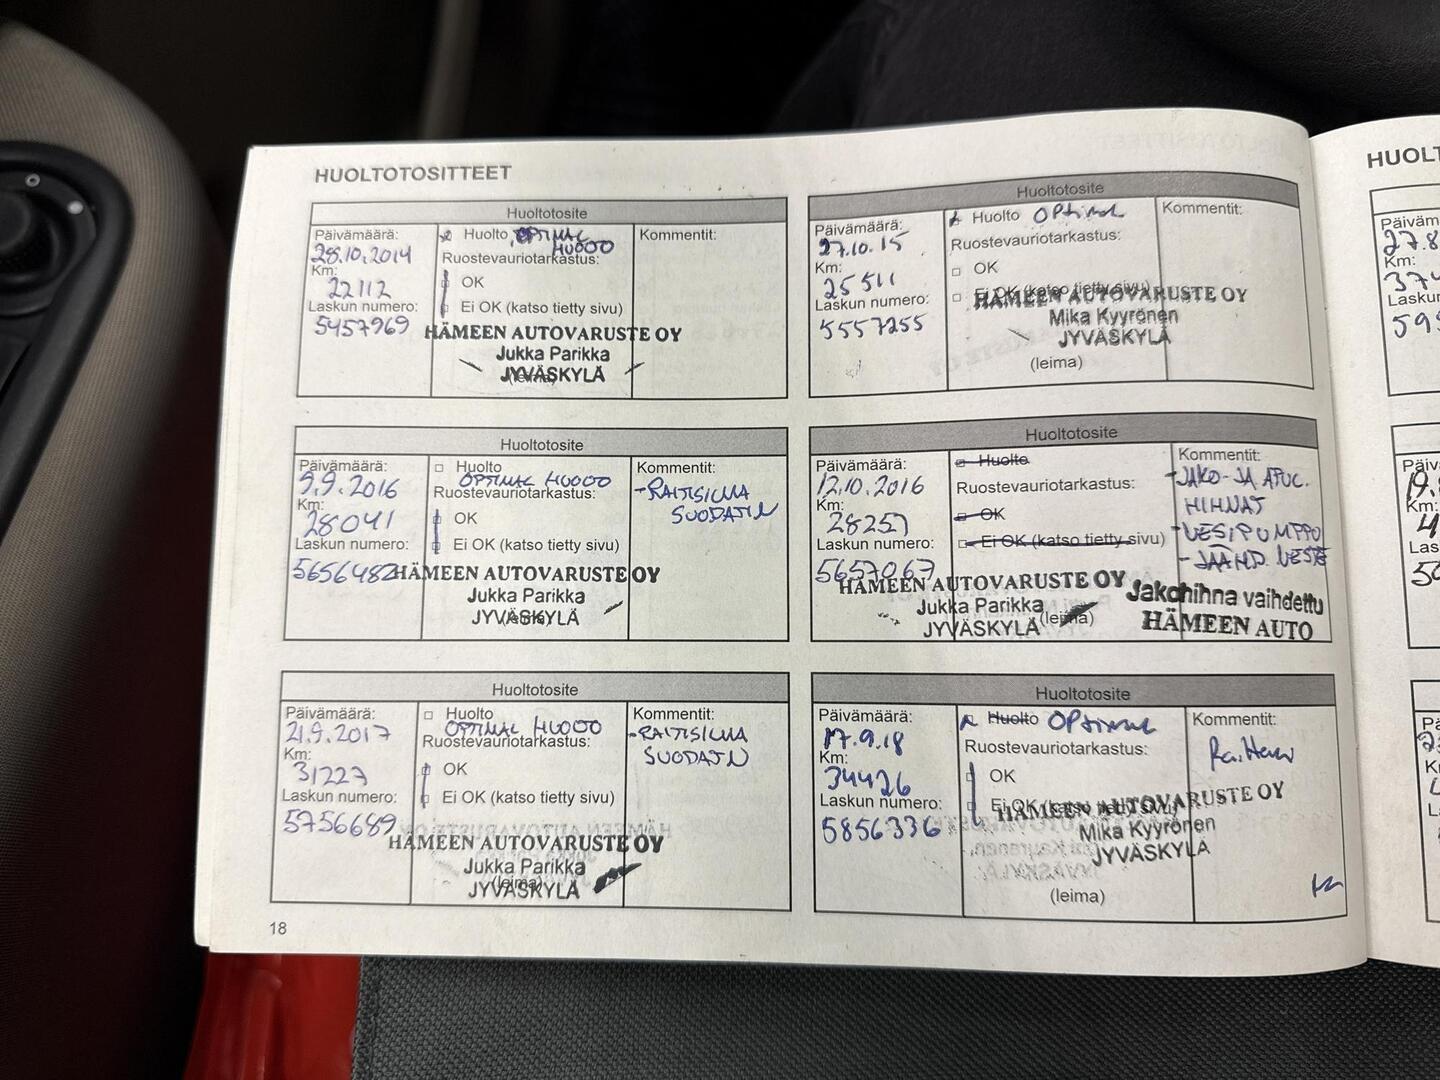 HUOLTOTOSITTEET
Huoltotosite
Päivämäärä:
28.10.2014
Km:
22112
Laskun numero:
5457969
Huolto OPTIMAL
HUOLTO
Ruostevauriotarkastus:
OK
Ei OK (katso tietty sivu)
HÄMEEN AUTOVARUSTE OY
Jukka Parikka
JYVÄSKYLÄ
Kommentit:
Huoltotosite
Päivämäärä:
27.10.15
Km:
25511
Laskun numero:
5557255
Huolto OPtimal
Ruostevauriotarkastus:
OK
Ei OK (katso tietty sivu)
HÄMEEN AUTOVARUSTE OY
Mika Kyyrönen
JYVÄSKYLÄ
(leima)
Kommentit:
Huoltotosite
Päivämäärä:
9.9.2016
Km:
28041
Laskun numero:
5656482
Huolto
OPTIMAL HUOLTO
Ruostevauriotarkastus:
OK
Ei OK (katso tietty sivu)
HÄMEEN AUTOVARUSTE OY
Jukka Parikka
JYVÄSKYLÄ
Kommentit:
-RAITISILMA
SUODATIN
Huoltotosite
Päivämäärä:
12.10.2016
Km:
28257
Laskun numero:
5657067
Huolto
Ruostevauriotarkastus:
OK
Ei OK (katso tietty sivu)
HÄMEEN AUTOVARUSTE OY
Jukka Parikka
JYVÄSKYLÄ (leima)
Kommentit:
-JAKO- JA APUL.
HIHNAT
-VESIPUMPPU
-JÄÄHD. NESTE
Jakohihna vaihdettu
HÄMEEN AUTO
Huoltotosite
Päivämäärä:
21.9.2017
Km:
31227
Laskun numero:
5756689
Huolto
OPTIMAL HUOLTO
Ruostevauriotarkastus:
OK
Ei OK (katso tietty sivu)
HÄMEEN AUTOVARUSTE OY
Jukka Parikka
(leima)
JYVÄSKYLÄ
Kommentit:
-RAITISILMA
SUODATIN
Huoltotosite
Päivämäärä:
17.9.18
Km:
34426
Laskun numero:
5856336
Huolto OPtimal
Ruostevauriotarkastus:
OK
Ei OK (katso tietty sivu)
HÄMEEN AUTOVARUSTE OY
Mika Kyyrönen
JYVÄSKYLÄ
(leima)
Kommentit:
18